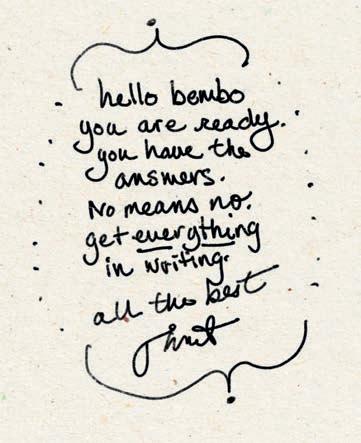 hello bembo
you are ready.
you have the
answers.
No means no.
get everything
in writing.
all the best